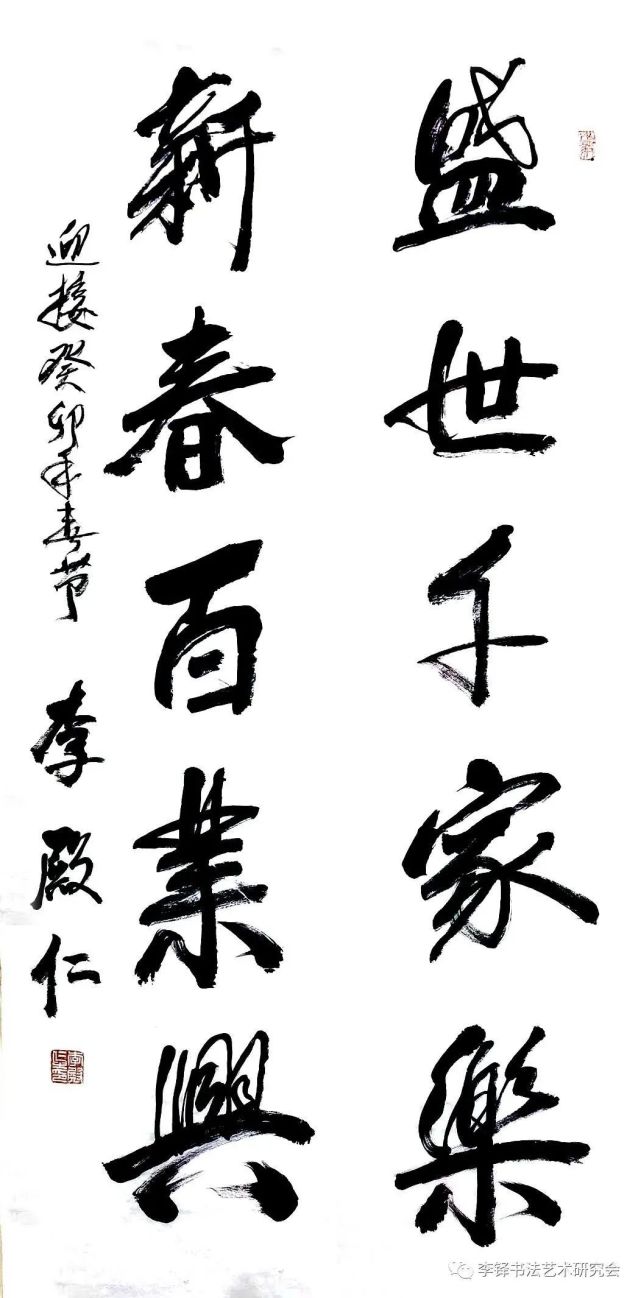 盛世千家樂
新春百業興
迎接癸卯年春节
李殿仁
李铎书法艺术研究会